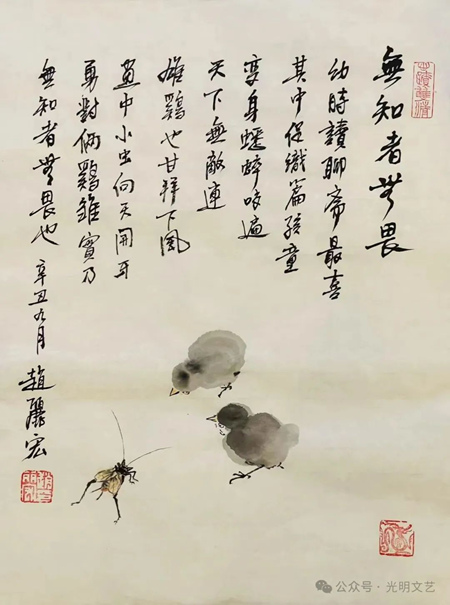 無知者無畏
幼時讀聊齋最喜
其中促織篇孩童
變身蟋蟀咬遍
天下無敵連
雄鷄也甘拜下風
畫中小虫向天開牙
勇對倆鷄雛實乃
無知者無畏也
辛丑九月 趙麗宏
公众号・光明文艺